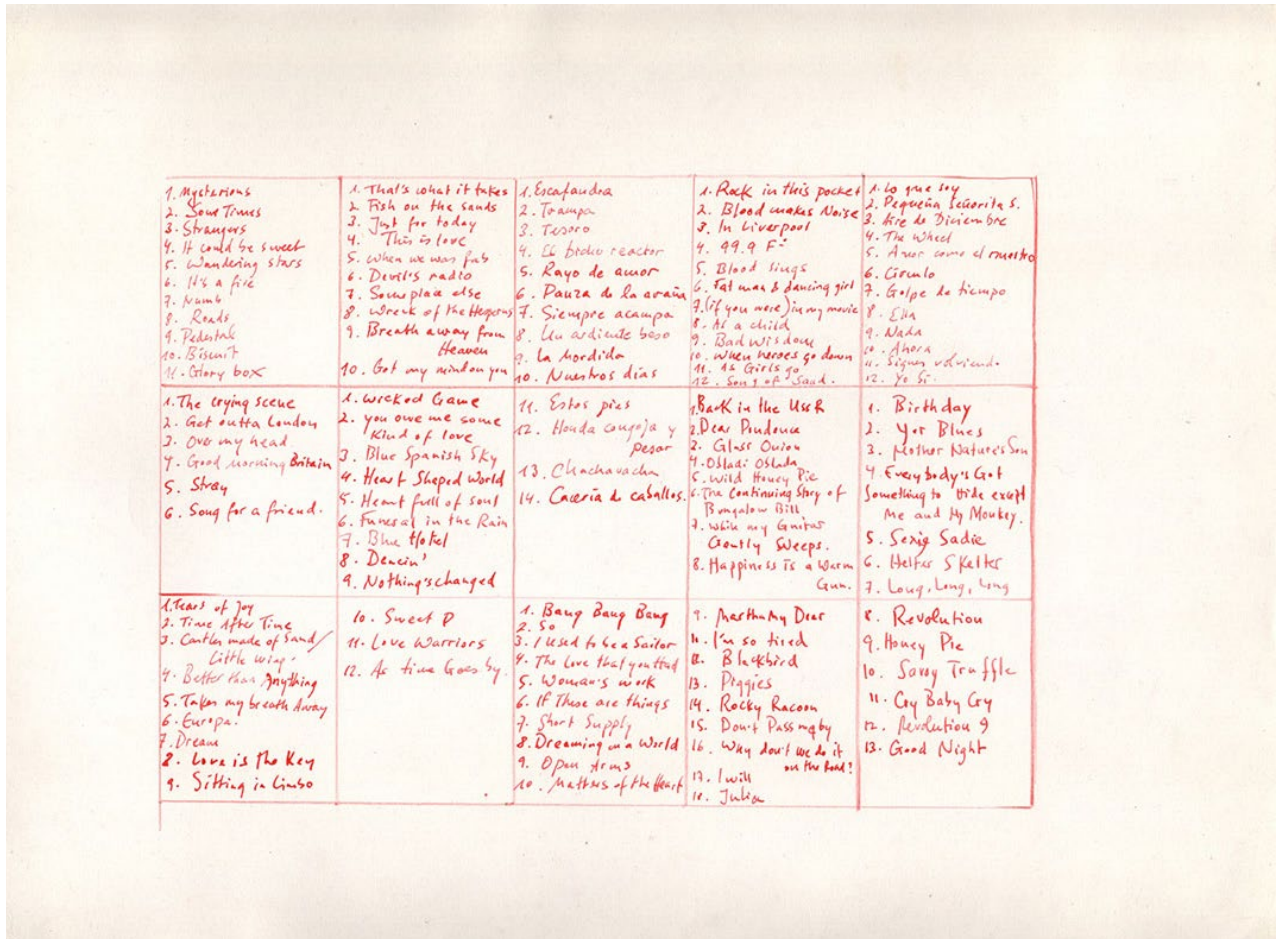 1. Mysterious
2. Some Times
3. Strangers
4. It could be sweet
5. Wandering stars
6. It's a fire
7. Numb
8. Roads
9. Pedestal
10. Biscuit
11. Glory box
1. That's what it takes
2. Fish on the sands
3. Just for today
4. This is love
5. When we was fab
6. Devil's radio
7. Someplace else
8. Wreck of the Hesperus
9. Breath away from
Heaven
10. Got my mind on you
1. Escafandra
2. Trampa
3. Tesoro
4. El bicho reactor
5. Rayo de amor
6. Danza de la araña
7. Siempre acampa
8. Un ardiente beso
9. La Mordida
10. Nuestros días
1. Rock in this pocket
2. Blood makes Noise
3. In Liverpool
4. 99.9 F°
5. Blood sings
6. Fat man & dancing girl
7. (if you were) in my movie
8. As a child
9. Bad wisdom
10. When heroes go down
11. As Girls go
12. Song of Sand.
1. Lo que soy
2. Pequeña señorita S.
3. Aire de Diciembre
4. The Wheel
5. Amor como el nuestro
6. Círculo
7. Golpe de tiempo
8. Ella
9. Nada
10. Ahora
11. Sigues volviendo.
12. Yo Sí.
1. The crying scene
2. Get outta London
3. Over my head
4. Good morning Britain
5. Stray
6. Song for a friend.
1. Wicked Game
2. you owe me some
Kind of love
3. Blue Spanish Sky
4. Heart Shaped World
5. Heart full of soul
6. Funeral in the Rain
7. Blue Hotel
8. Dancin'
9. Nothing's changed
11. Estos pies
12. Honda congoja y
pesar
13. Chachavacha
14. Cacería de caballos.
1. Back in the USSR
2. Dear Prudence
3. Glass Onion
4. Obladi Oblada
5. Wild Honey Pie
6. The Continuing Story of
Bungalow Bill
7. While my Guitar
Gently Sweeps.
8. Happiness is a Warm
Gun.
1. Birthday
2. Yer Blues
3. Mother Nature's Son
4. Everybody's Got
Something to Hide except
Me and My Monkey.
5. Sexie Sadie
6. Helter Skelter
7. Long, Long, Long
1. Tears of Joy
2. Time After Time
3. Castles made of Sand/
Little wing.
4. Better than Anything
5. Takes my breath Away
6. Europa.
7. Dream
8. Love is the Key
9. Sitting in Limbo
10. Sweet P
11. Love Warriors
12. As time Goes by.
1. Bang Bang Bang
2. So
3. I used to be a Sailor
4. The Love that you Had
5. Woman's work
6. If These are things
7. Short Supply
8. Dreaming on a World
9. Open Arms
10. Matters of the Heart
9. Martha My Dear
10. I'm so tired
11. Blackbird
13. Piggies
14. Rocky Racoon
15. Don't Pass me by
16. Why don't we do it
on the Road?
17. I will
18. Julia
8. Revolution
9. Honey Pie
10. Savoy Truffle
11. Cry Baby Cry
12. Revolution 9
13. Good Night